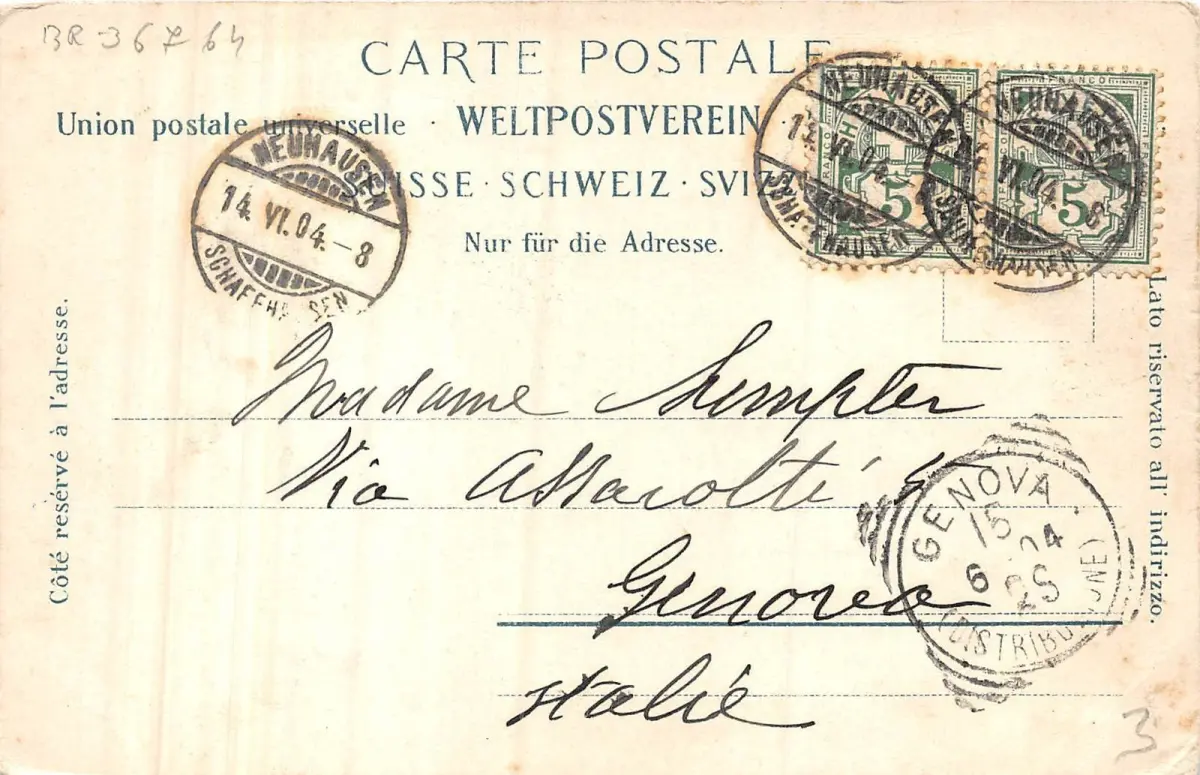 BR 36764
CARTE POSTALE
Union postale universelle · WELTPOSTVEREIN
SUISSE · SCHWEIZ · SVIZZERA
Nur für die Adresse.
NEUHAUSEN
14. VI. 04. – 8
SCHAFFHAUSEN
NEUHAUSEN
14. VI. 04. – 8
SCHAFFHAUSEN
NEUHAUSEN
VI. 04. 8
SCHAFFHAUSEN
FRANCO
5
5
Côté resérvé à l'adresse.
Lato riservato all' indirizzo.
Madame Sumpter
Via Assarolté 5
Genova
Italie
GENOVA
15
6 04
2S
(DISTRIBUZIONE)
3